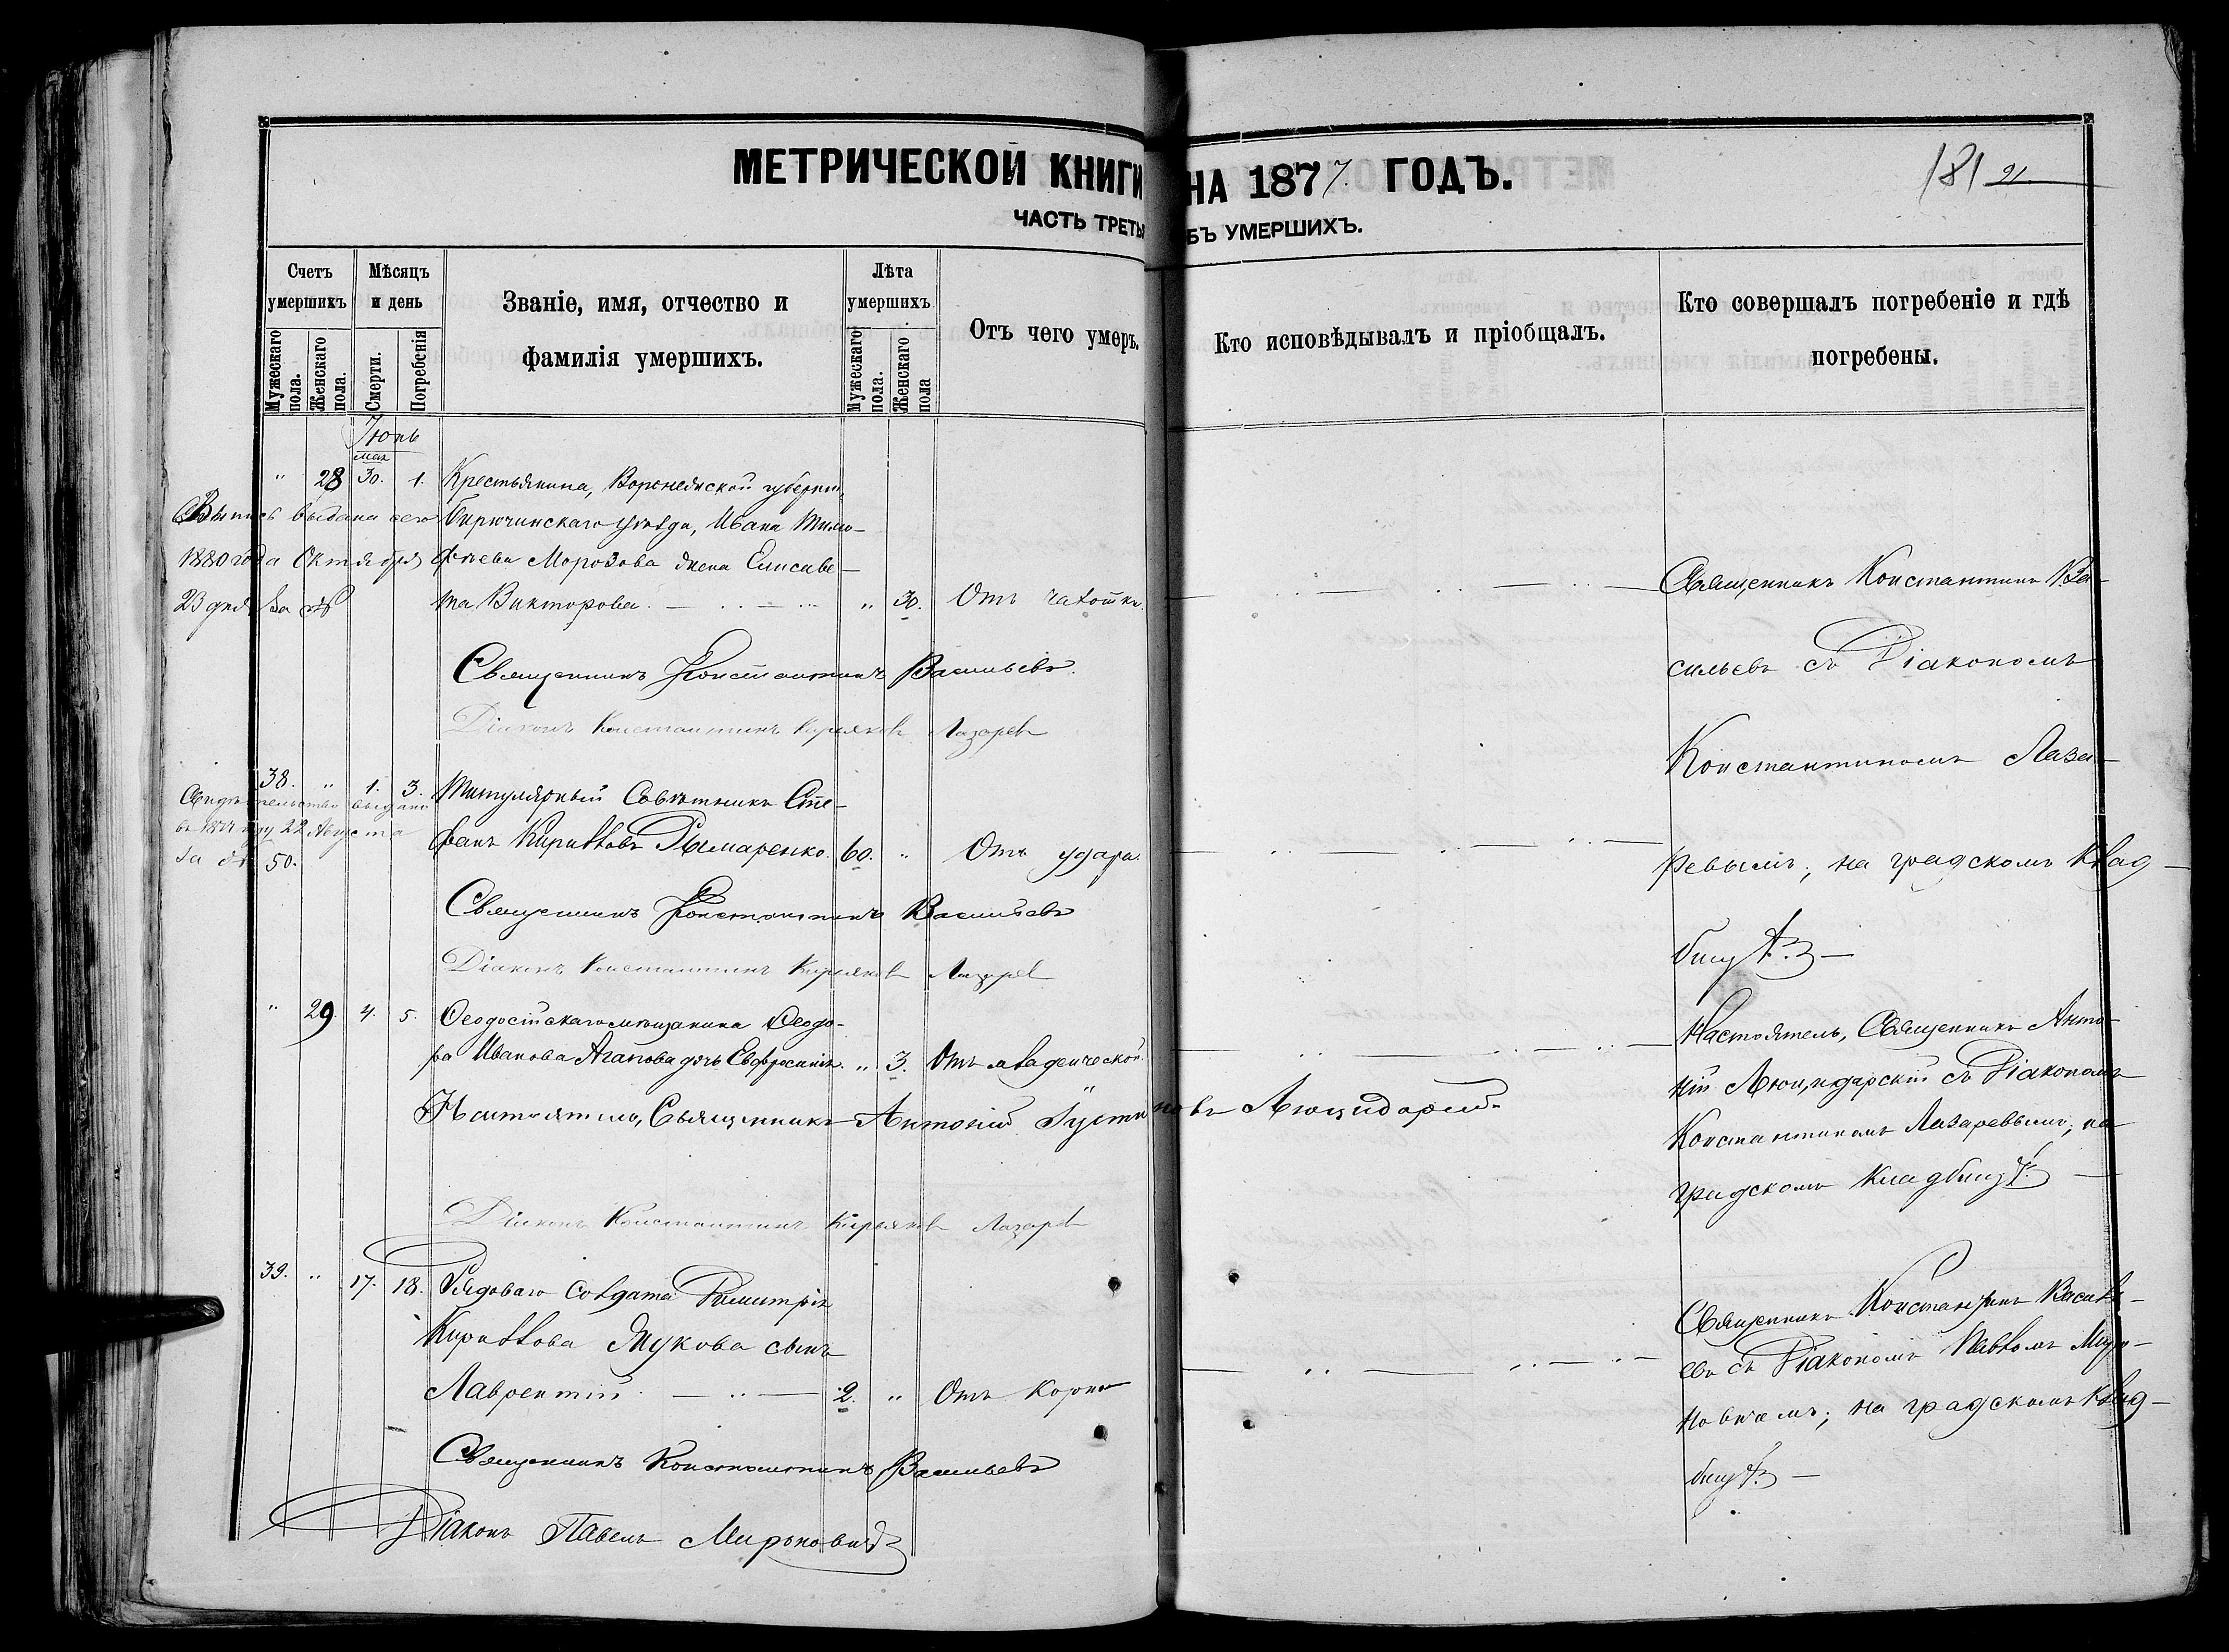 МЕТРИЧЕСКОЙ КНИГИ НА 1877 ГОДЪ.
181 91
ЧАСТЬ ТРЕТЬ БЪ УМЕРШИХЪ.
Счетъ умершихъ
Мѣсяцъ и день
Званіе, имя, отчество и фамилія умершихъ.
Лѣта умершихъ
Отъ чего умеръ.
Кто исповѣдывалъ и пріобщалъ.
Кто совершалъ погребеніе и гдѣ погребены.
Мужескаго пола.
Женскаго пола.
Смерти.
Погребенія
Мужескаго пола.
Женскаго пола
Іюнь
мая
" 28 30. 1. Крестьянина, Воронежской губерніи,
Выпись выдана сего Бирючинскаго уѣзда, Ивана Тимо-
1880 года Октября фѣева Морозова жена Елисаве-
23 дня за № та Викторова. " 30. Отъ чахотки.
Священникъ Константинъ Васильевъ.
Діаконъ Константинъ Киріяковъ Лазарев
Священникъ Константинъ Ва-
сильевъ съ Діакономъ
Константиномъ Лаза-
ревымъ; на градскомъ клад-
бищѣ.
38. " 1. 3. Титулярный Совѣтникъ Сте-
Свидѣтельство выдано
въ 1877 году 22 Августа
за № 50.
фанъ Кирилловъ Рымаренко. 60. " Отъ удара.
Священникъ Константинъ Васильевъ
Діаконъ Константинъ Киріяковъ Лазарев
" 29. 4. 5. Ѳеодосійскаго мѣщанина Ѳеодо-
ра Иванова Агапова дочь Евфросинія. " 3. Отъ младенческой.
Настоятель, Священникъ Антоній Іустиновъ Люцидарскій.
Діаконъ Константинъ Киріяковъ Лазарев
Настоятель, Священникъ Анто-
ній Люцидарскій съ Діакономъ
Константиномъ Лазаревымъ; на
градскомъ кладбищѣ.
39. " 17. 18. Рядоваго солдата Димитрія
Кириллова Жукова сынъ
Лаврентій 2. " Отъ кори
Священникъ Константинъ Васильевъ
Діаконъ Павелъ Мироновичъ
Священникъ Константинъ Василь-
евъ съ Діакономъ Павломъ Миро-
новичемъ; на градскомъ клад-
бищѣ